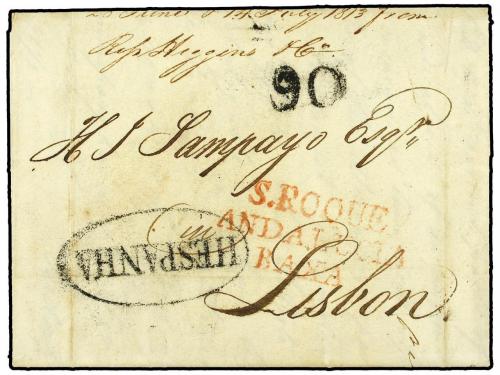 28 June & 14 July 1813 from
Ross Higgins & Co
90
H J Sampayo Esqr
S.ROQUE
ANDALUCIA
BAXA
HESPANHA
Lisbon